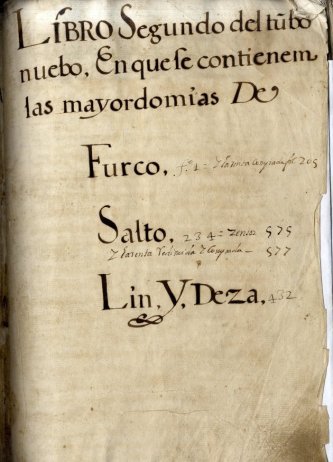 LIBRO Segundo del tũbo
nuebo, En que se contienem
las mayordomias De
Furco, fº 1 = 205
Salto, 234 = Zensos 575
577
Lin, Y, Deza, 432